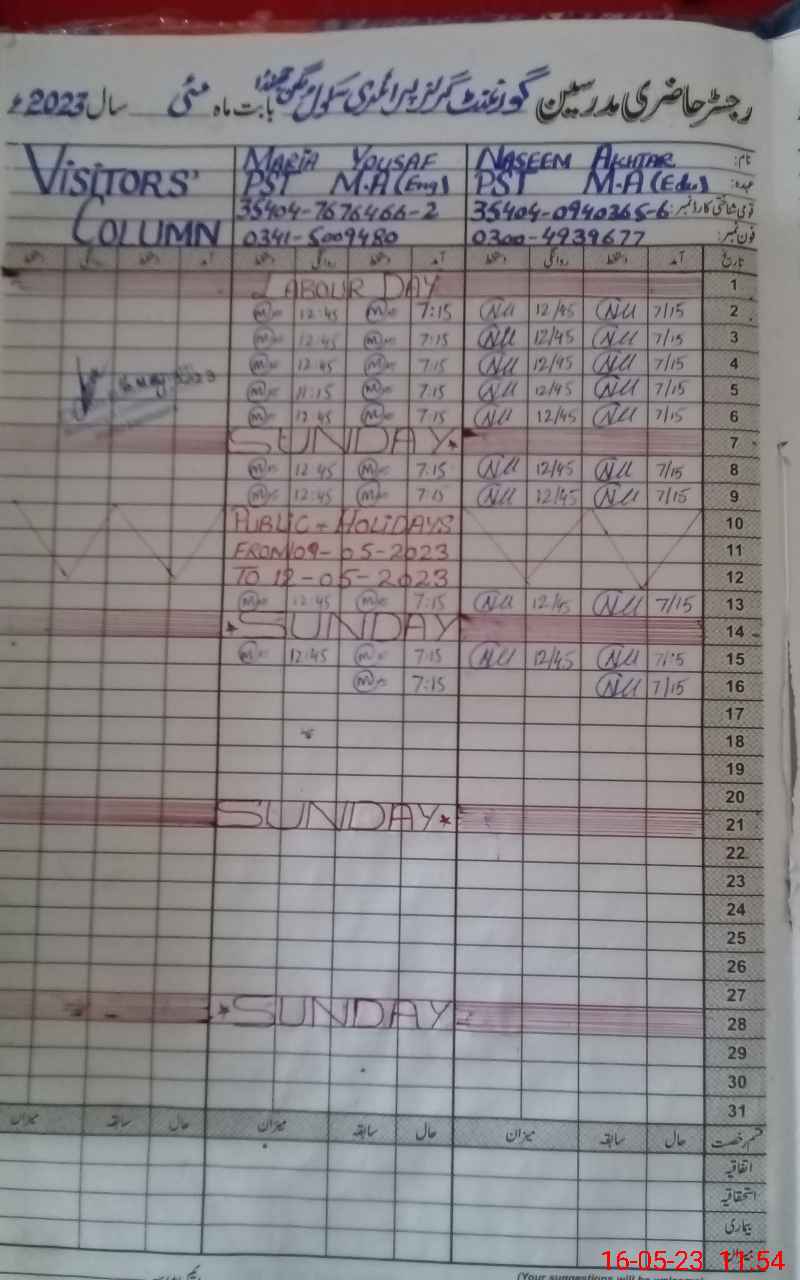 رجسٹر حاضری مدرسین گورنمنٹ گرلز پرائمری سکول بابت ماہ مئی سال 2023ء
نام: NASEEM AKHTAR MARIA YOUSAF VISITORS'
عہدہ: PST M.A (Edu) PST M.A (Eng)
قومی شناختی کارڈ نمبر: 35404-0940365-6 35404-7676466-2 COLUMN
فون نمبر: 0300-4939677 0341-5009480
تاریخ آمد دستخط روانگی دستخط آمد دستخط روانگی دستخط آمد دستخط روانگی دستخط
1 LABOUR DAY
2 7/15 NU 12/45 NU 7:15 M 12:45 M
3 7/15 NU 12/45 NU 7:15 M 12:45 M
4 7/15 NU 12/45 NU 7:15 M 12:45 M
5 7/15 NU 12/45 NU 7:15 M 11:15 M 16 May 2023
6 7/15 NU 12/45 NU 7:15 M 12:45 M
7 SUNDAY
8 7/15 NU 12/45 NU 7:15 M 12:45 M
9 7/15 NU 12/45 NU 7:15 M 12:45 M
10 PUBLIC - HOLIDAYS
11 FROM 09-05-2023
12 TO 12-05-2023
13 7/15 NU 12/45 NU 7:15 M 12:45 M
14 SUNDAY
15 7/15 NU 12/45 NU 7:15 M 12:45 M
16 7/15 NU 7:15 M
17
18
19
20
21 SUNDAY
22
23
24
25
26
27
28 SUNDAY
29
30
31
قسم رخصت حال سابقہ میزان حال سابقہ میزان حال سابقہ میزان
اتفاقیہ
استحقاقیہ
بیماری
میزان
(Your suggestions will be
16-05-23 11:54